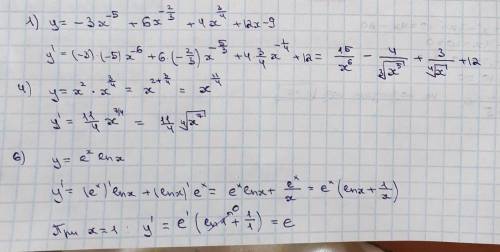 1) y = -3x^{-5} + 6x^{-2/3} + 4x^{3/4} + 12x - 9
y' = (-3)·(-5)x^{-6} + 6·(-2/3)x^{-5/3} + 4·3/4 x^{-1/4} + 12 = 15/x^6 - 4/∛(x^5) + 3/∜x + 12
4) y = x^2 · x^{3/4} = x^{2+3/4} = x^{11/4}
y' = 11/4 x^{7/4} = 11/4 ∜(x^7)
6) y = e^x lnx
y' = (e^x)' lnx + (lnx)' e^x = e^x lnx + e^x/x = e^x (lnx + 1/x)
При x=1: y' = e^1 (ln1^{→0} + 1/1) = e